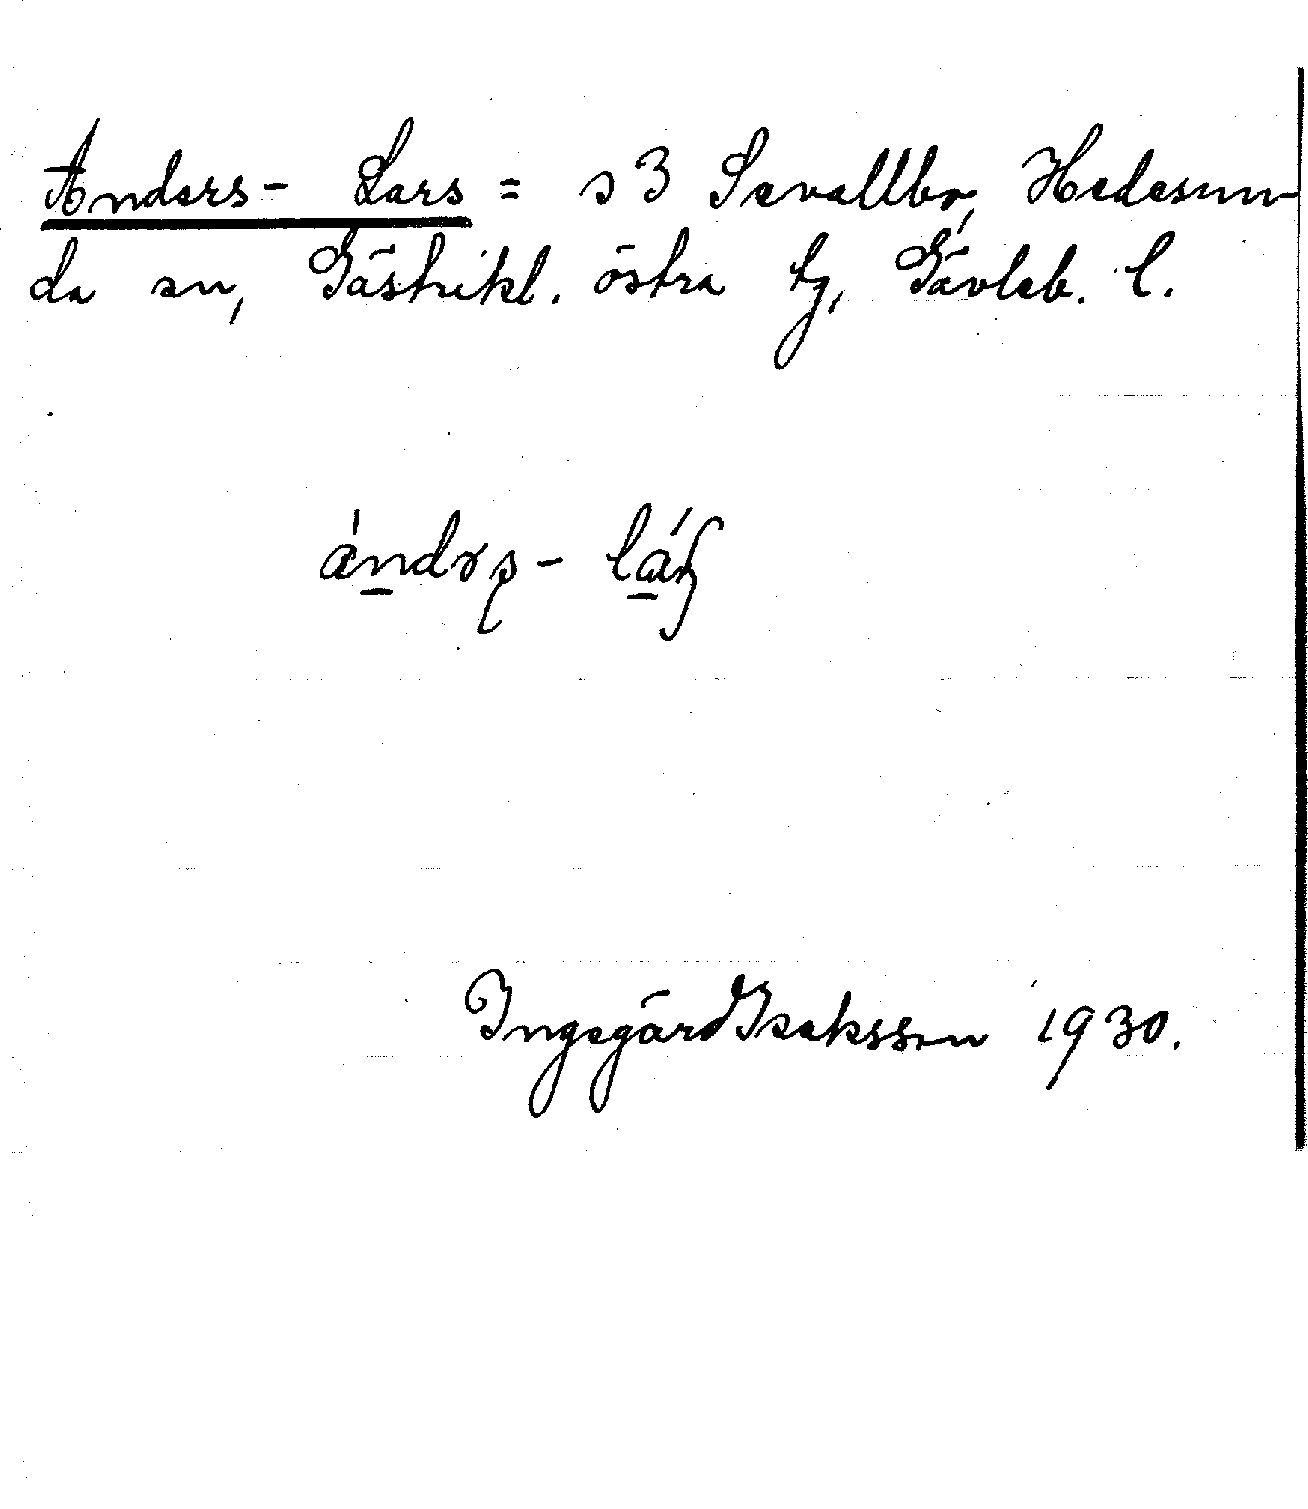 Anders- Lars = s3 Sevallbo, Hedesun-
da sn, Gästrikl. östra tg, Gävleb. l.
Ingegärd Isaksson 1930.